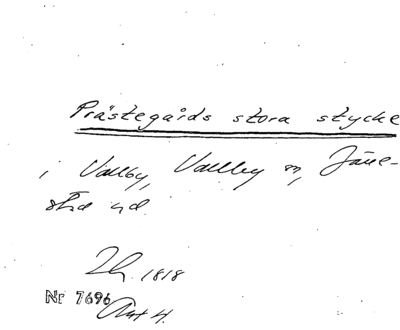 Prästegårds stora stycke
i Valby, Valby sn, Järre-
stad hd.
1818
Nr 7696